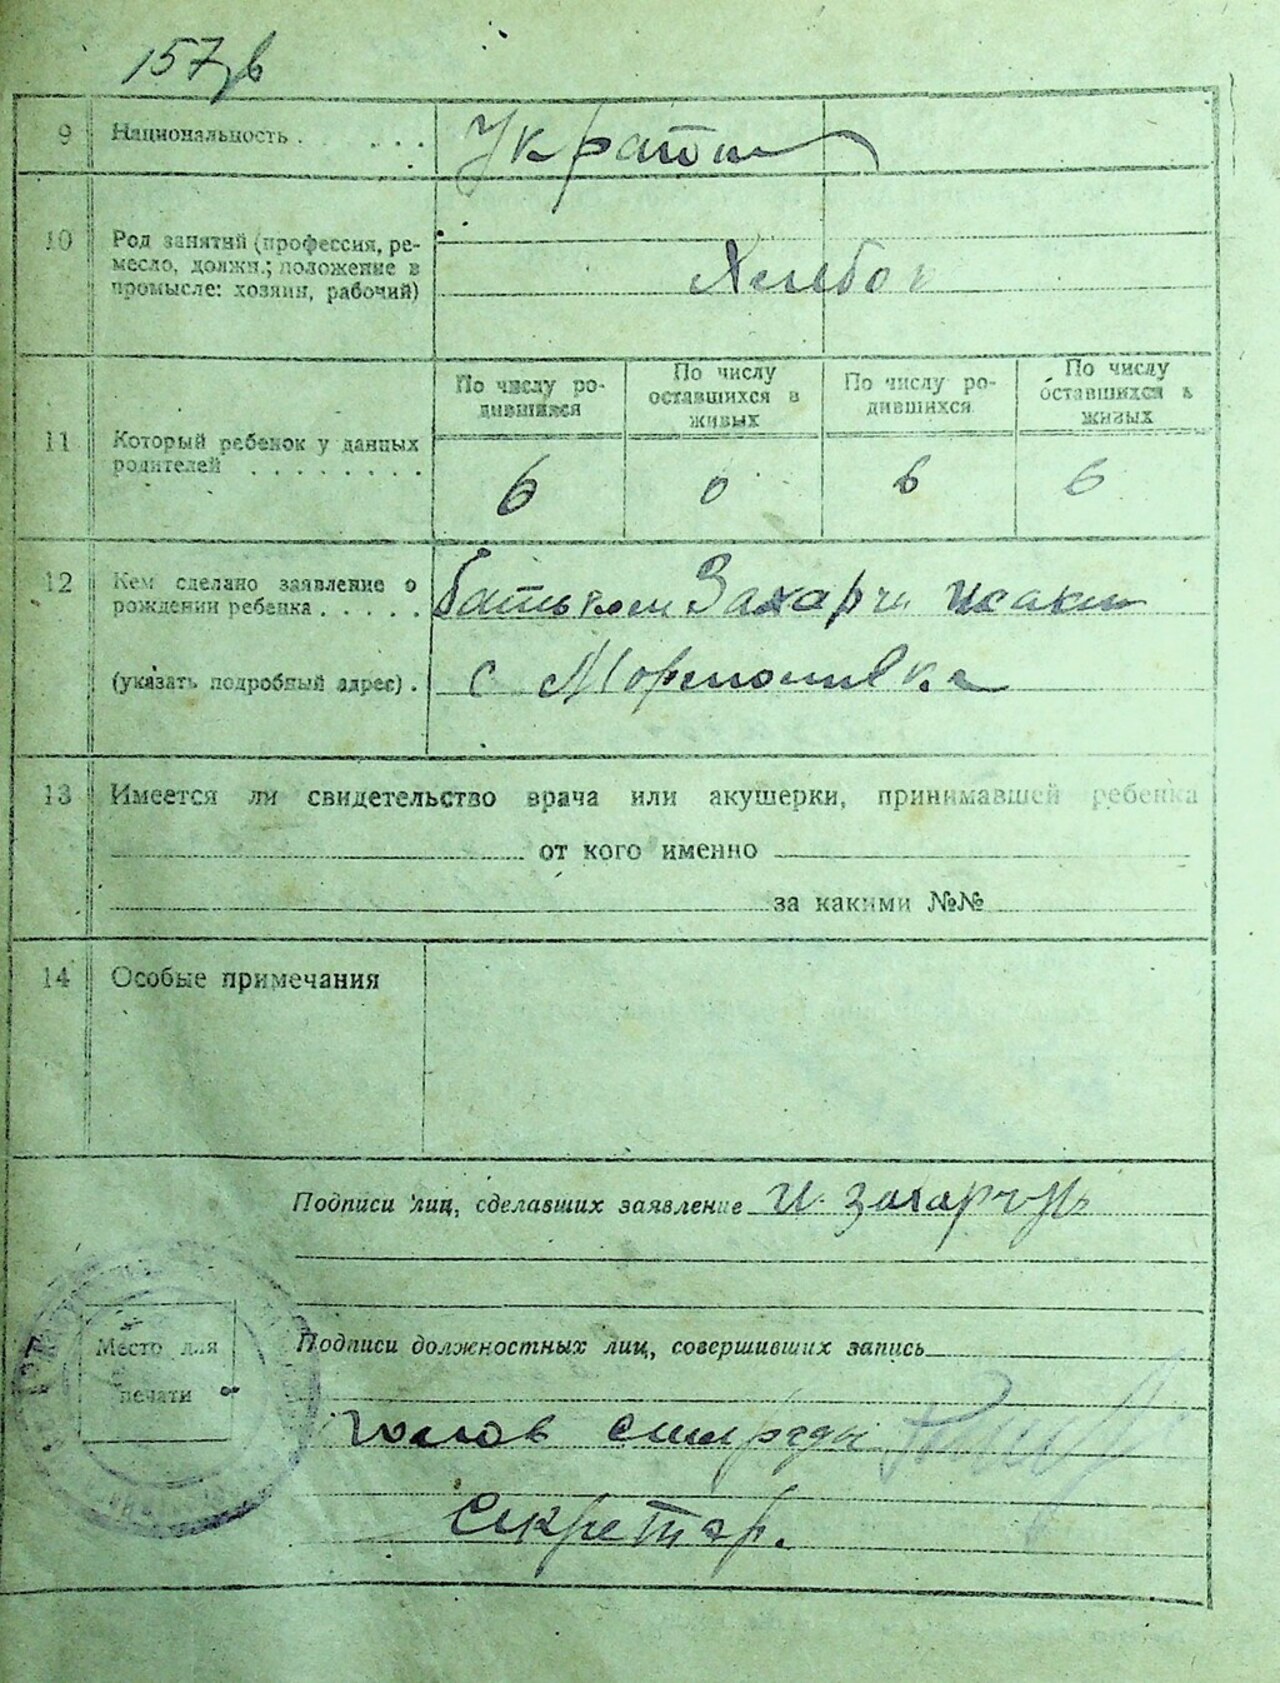 157 в
9 Национальность . . . . . Украбин
10 Род занятий (профессия, ре-
месло, должн.; положение в
промысле: хозяин, рабочий)
Хлибор
По числу ро-
дившихся
По числу
оставшихся в
живых
По числу ро-
дившихся
По числу
оставшихся в
живых
11 Который ребенок у данных
родителей . . . . . . . .
6 0 6 6
12 Кем сделано заявление о
рождении ребенка . . . . .
Батьком Захарчи Исаки
(указать подробный адрес) .
с
13 Имеется ли свидетельство врача или акушерки, принимавшей ребенка
от кого именно
за какими №№
14 Особые примечания
Подписи лиц, сделавших заявление И. Захарчук
Место для
печати
Подписи должностных лиц, совершивших запись
голов сильради
Секретар.